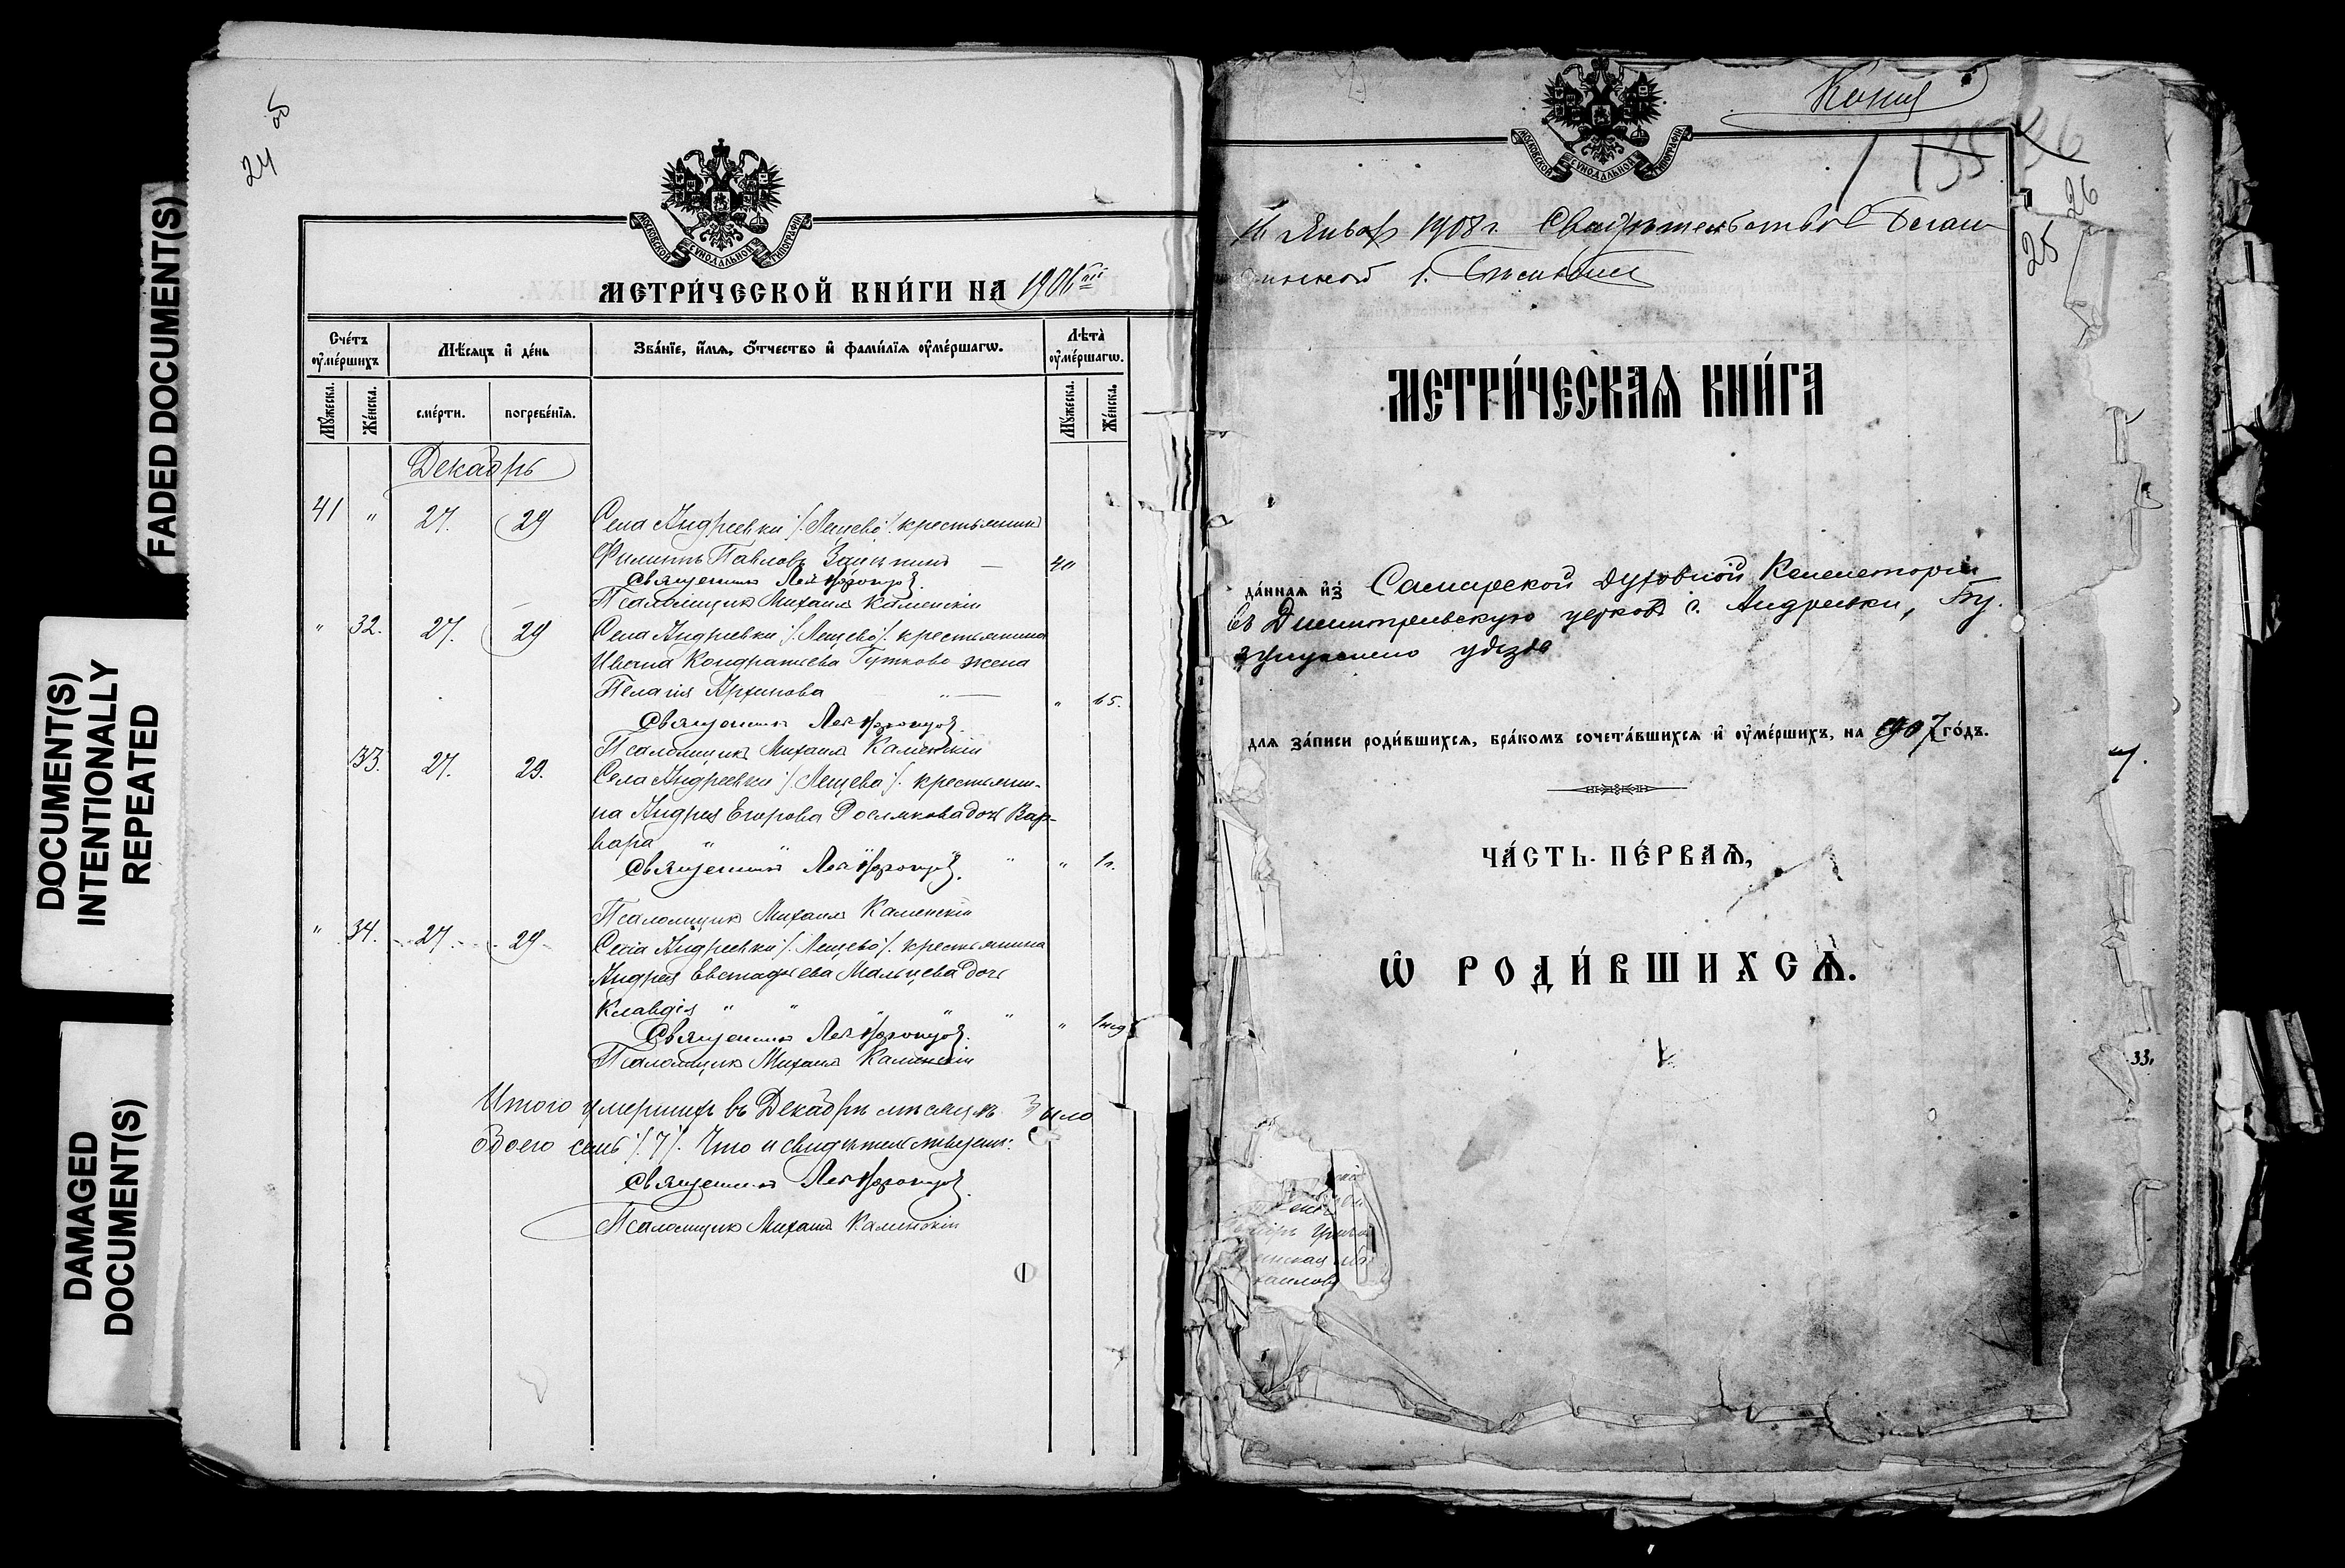 FADED DOCUMENT(S)
DOCUMENT(S)
INTENTIONALLY
REPEATED
DAMAGED
DOCUMENT(S)
24 об
МОСКОВСКОЙ СѴНОДАЛЬНОЙ ТИПОГРАФІИ
МЕТРИ́ЧЕСКОЙ КНИ́ГИ НА 1906
Сче́тъ ѹ҆ме́ршихъ
Мѣ́сяцъ и҆ де́нь
Зва́нїе, и҆́мѧ, ѻ҆́тчество и҆ фами́лїѧ ѹ҆ме́ршагѡ.
Лѣта̀ ѹ҆ме́ршагѡ.
Мꙋ́жеска.
Же́нска.
сме́рти.
погребе́нїѧ.
Мꙋ́жеска.
Же́нска.
Декабрь
41 " 27. 29 Села Андреевки /. Лещево /. крестьянинъ
Филиппъ Павловъ — 40
Священникъ
Псаломщикъ Михаилъ Каменскій
" 32. 27. 29 Села Андреевки /. Лещево /. крестьянина
Ивана Кондратьева жена
Пелагія Архипова " 65.
Священникъ
Псаломщикъ Михаилъ Каменскій
33. 27. 29. Села Андреевки /. Лещева /. крестьяни-
на Андрея Егорова Рослякова дочь Вар-
вара " "
Священникъ " 1 г.
Псаломщикъ Михаилъ Каменскій
" 34. 27. 29 Села Андреевки /. Лещево /. крестьянина
Андрея Евстафьева Мальцева дочь
Клавдія " " " " "
Священникъ
Псаломщикъ Михаилъ Каменскій
Итого умершихъ въ Декабрѣ мѣсяцѣ было
обоего семь /. 7 /. Что и свидѣтельствуемъ:
Священникъ
Псаломщикъ Михаилъ Каменскій
Копія
135
26
25 26
МОСКОВСКОЙ СѴНОДАЛЬНОЙ ТИПОГРАФІИ
16 Январ 1908 г.
МЕТРИ́ЧЕСКАѦ КНИ́ГА
да́ннаѧ и҆з̾ Самарской Духовной Консисторіи
въ Димитріевскую церковь с. Андреевки, Бу-
зулукскаго уѣзда
для за́писи роди́вшихсѧ, бра́комъ сочета́вшихсѧ и҆ ѹ҆ме́ршихъ, на 1907 го́дъ.
ЧА́СТЬ ПЕ́РВАѦ,
Ѡ҆ РОДИ́ВШИХСѦ.
33,